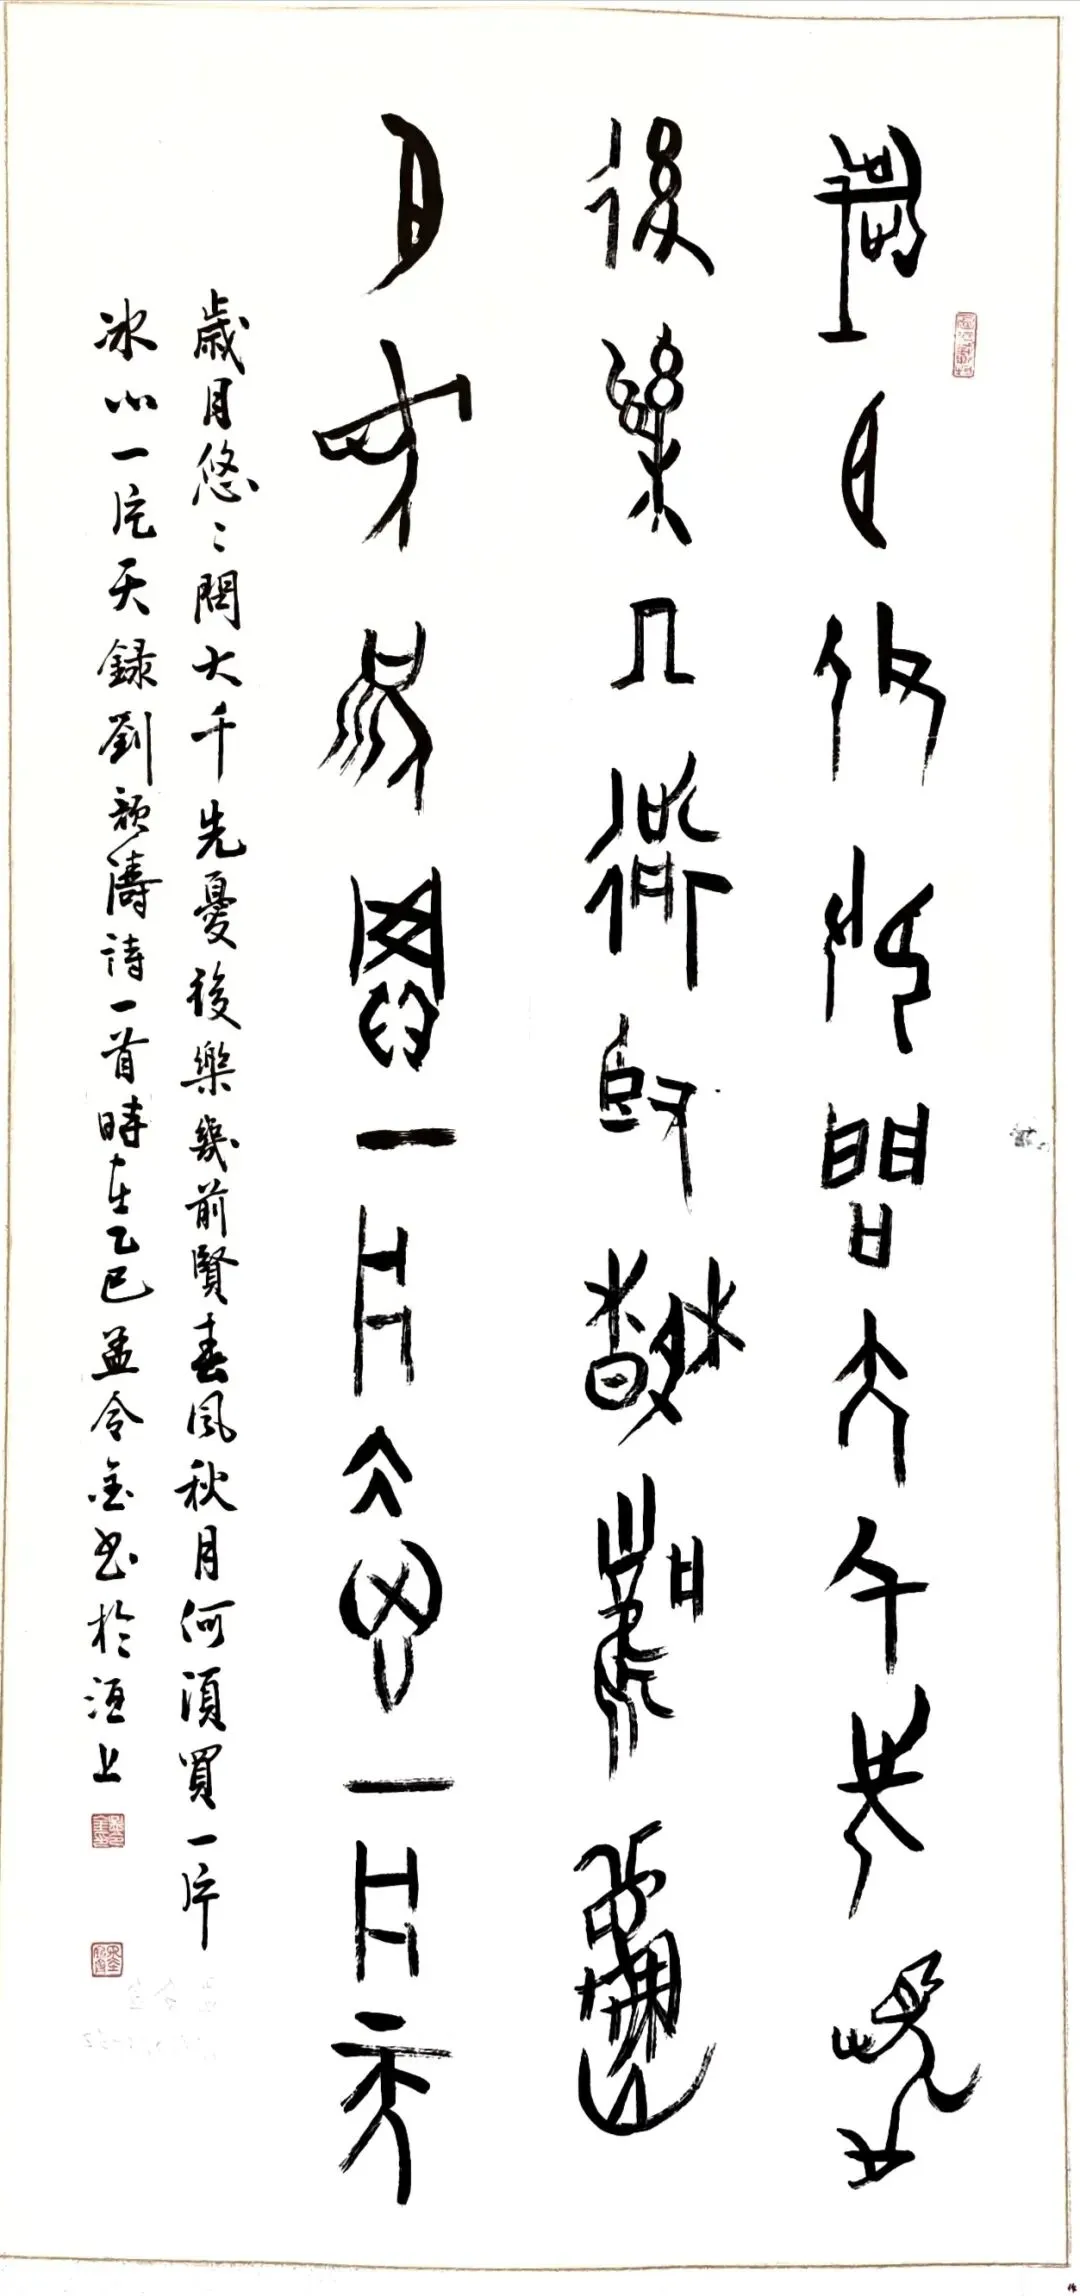 歲月攸攸間大千先憂
後樂几前臤春風秋
月何須買一片冰心一片天
歲月悠〻間大千先憂後樂幾前賢春風秋月何須買一片
冰心一片天錄劉韻濤詩一首時在乙巳孟令金書於洹上